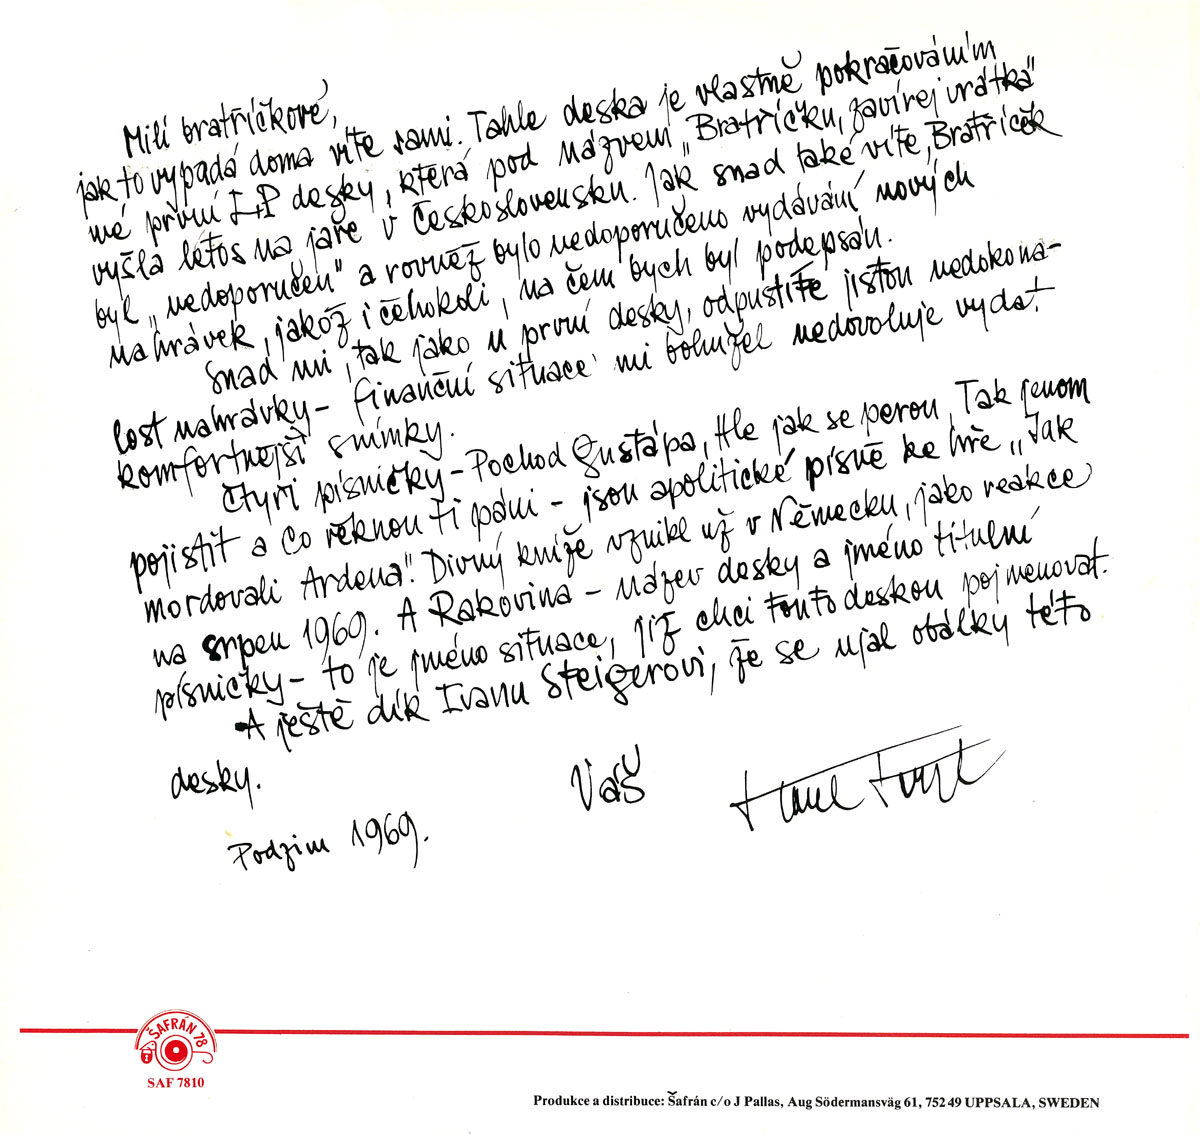 Milí bratříčkové,
jak to vypadá doma víte sami. Tahle deska je vlastně pokračováním
mé první LP desky, která pod názvem „Bratříčku, zavírej vrátka“
vyšla letos na jaře v Československu. Jak snad také víte, Bratříček
byl „nedoporučen“ a rovněž bylo nedoporučeno vydávání nových
nahrávek, jakož i čehokoli, na čem bych byl podepsán.
Snad mi, tak jako u první desky, odpustíte jistou nedokona-
lost nahrávky – finanční situace mi bohužel nedovoluje vydat
komfortnější snímky.
Čtyři písničky – Pochod Gustápa, Hle jak se perou, Tak jenom
pojistit a Co řeknou ti páni – jsou apolitické písně ke hře „Jak
mordovali Ardena“. Divný kníže vznikl už v Německu, jako reakce
na srpen 1969. A Rakovina – název desky a jméno titulní
písničky – to je jméno situace, jíž chci touto deskou pojmenovat.
A ještě dík Ivanu Steigerovi, že se ujal obálky této
desky.
Váš
Podzim 1969.
ŠAFRÁN 78
SAF 7810
Produkce a distribuce: Šafrán c/o J Pallas, Aug Södermansväg 61, 752 49 UPPSALA, SWEDEN